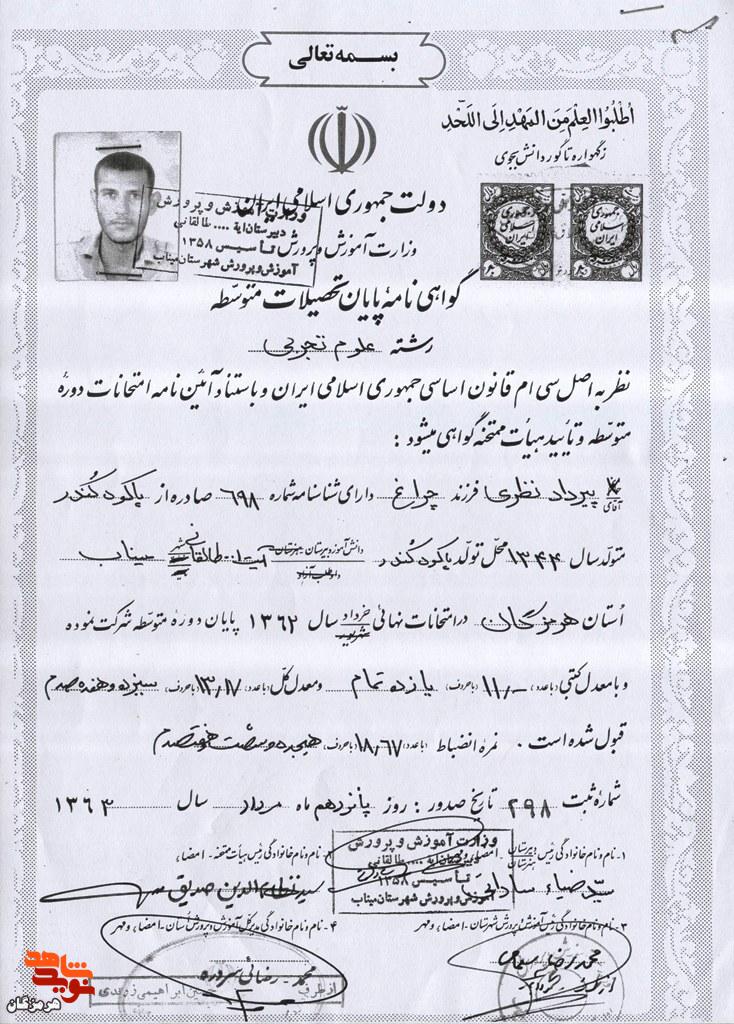 بسمه تعالی
اُطْلُبُوا العِلْمَ مِنَ المَهْدِ اِلَی اللَّحَدِ
ز گهواره تا گور دانش بجوی
دولت جمهوری اسلامی ایران
وزارت آموزش و پرورش
وزارت آموزش و پرورش
دبیرستان ایة .... طالقانی
تأسیس ۱۳۵۸
آموزش و پرورش شهرستان میناب
جمهوری اسلامی ایران
جمهوری اسلامی ایران
گواهی نامهٔ پایان تحصیلات متوسطه
رشته علوم تجربی
نظر به اصل سی ام قانون اساسی جمهوری اسلامی ایران و باستناد آئین نامه امتحانات دورهٔ
متوسطه و تأیید هیأت ممتحنه گواهی میشود :
آقای پیرداد نظری فرزند چراغ دارای شناسنامه شماره ۶۹۸ صادره از پاکوه کُندر
متولد سال ۱۳۴۴ محل تولد پاکوه کُندر دانش آموز دبیرستان هنرستان داوطلب آزاد آیت ا... طالقانی شهر میناب
اُستان هرمزگان در امتحانات نهائی خرداد شهریور سال ۱۳۶۲ پایان دورهٔ متوسطه شرکت نموده
و با معدل کتبی (با عدد) ۱۱/- (با حروف) یازده تمام و معدل کل (با عدد) ۱۳/۱۷ (با حروف) سیزده و هفده صدم
قبول شده است . نمرهٔ انضباط (با عدد) ۱۸/۶۷ (با حروف) هیجده و شصت و هفت صدم
شمارهٔ ثبت ۲۹۸ تاریخ صدور : روز پانزدهم ماه مرداد سال ۱۳۶۳
۱- نام و نام خانوادگی رئیس دبیرستان هنرستان - امضاء و مهر
۲- نام و نام خانوادگی رئیس هیأت ممتحنه - امضاء
وزارت آموزش و پرورش
دبیرستان ایة .... طالقانی
تأسیس ۱۳۵۸
آموزش و پرورش شهرستان میناب
سیّد ضیاء ساداتی
سید نظام الدین صدیق
۳- نام و نام خانوادگی رئیس آموزش و پرورش شهرستان - امضاء و مهر
۴- نام و نام خانوادگی مدیر کل آموزش و پرورش استان - امضاء و مهر
محمد رضا
محمد - رضائی سردره
از طرف حسین ابراهیمی زوندی
شاهد
نوید
هرمزگان